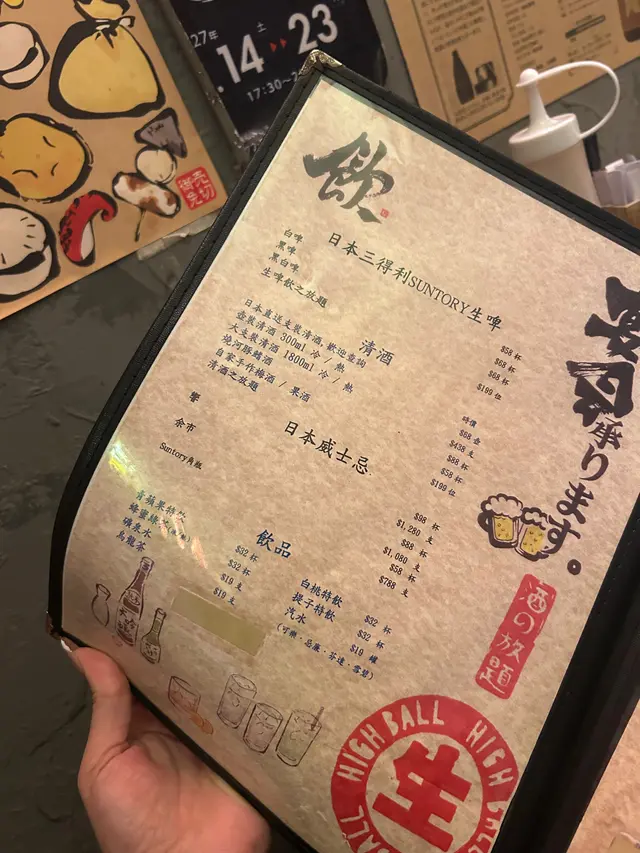 27年
.14 土 ▸▸ 23
17:30~2
御売
免切
飲
日本三得利SUNTORY生啤
白啤 $58 杯
黑啤 $68 杯
黑白啤 $68 杯
生啤飲之放題 $199 位
清酒
日本直送支裝清酒,歡迎查詢 時價
壺裝清酒 300ml 冷 / 熱 $68 壺
大支裝清酒 1800ml 冷 / 熱 $438 支
燒河豚鰭酒 $88 杯
自家手作梅酒 / 果酒 $58 杯
清酒之放題 $199 位
日本威士忌
響 $98 杯
$1,280 支
余市 $88 杯
$1,080 支
Suntory角瓶 $58 杯
$788 支
飲品
青蘋果特飲 $32 杯
蜂蜜綠茶 $32 杯
礦泉水 $19 支
烏龍茶 $19 支
白桃特飲 $32 杯
提子特飲 $32 杯
汽水 $19 罐
(可樂﹑忌廉﹑芬達﹑雪碧)
承ります。
酒の放題
HIGH BALL HIGH BALL
生